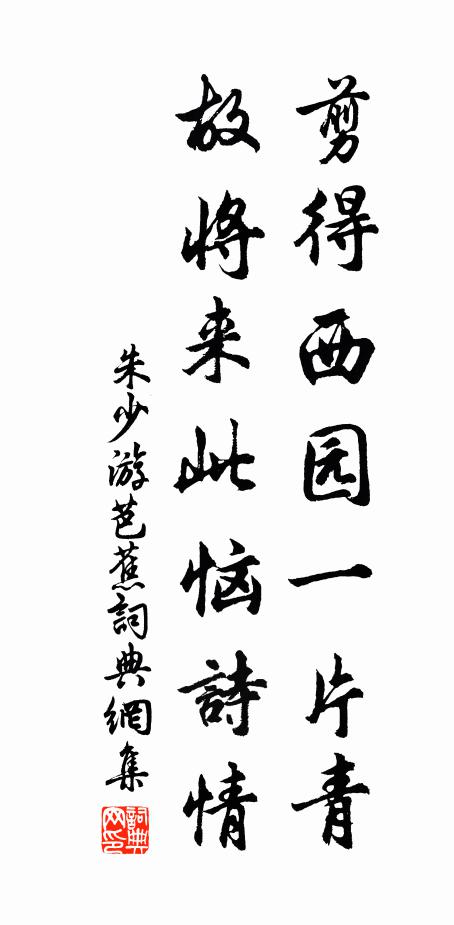 剪得西园一片青
故将来此恼詩情
朱少游芭蕉詞典網集
詞典网印